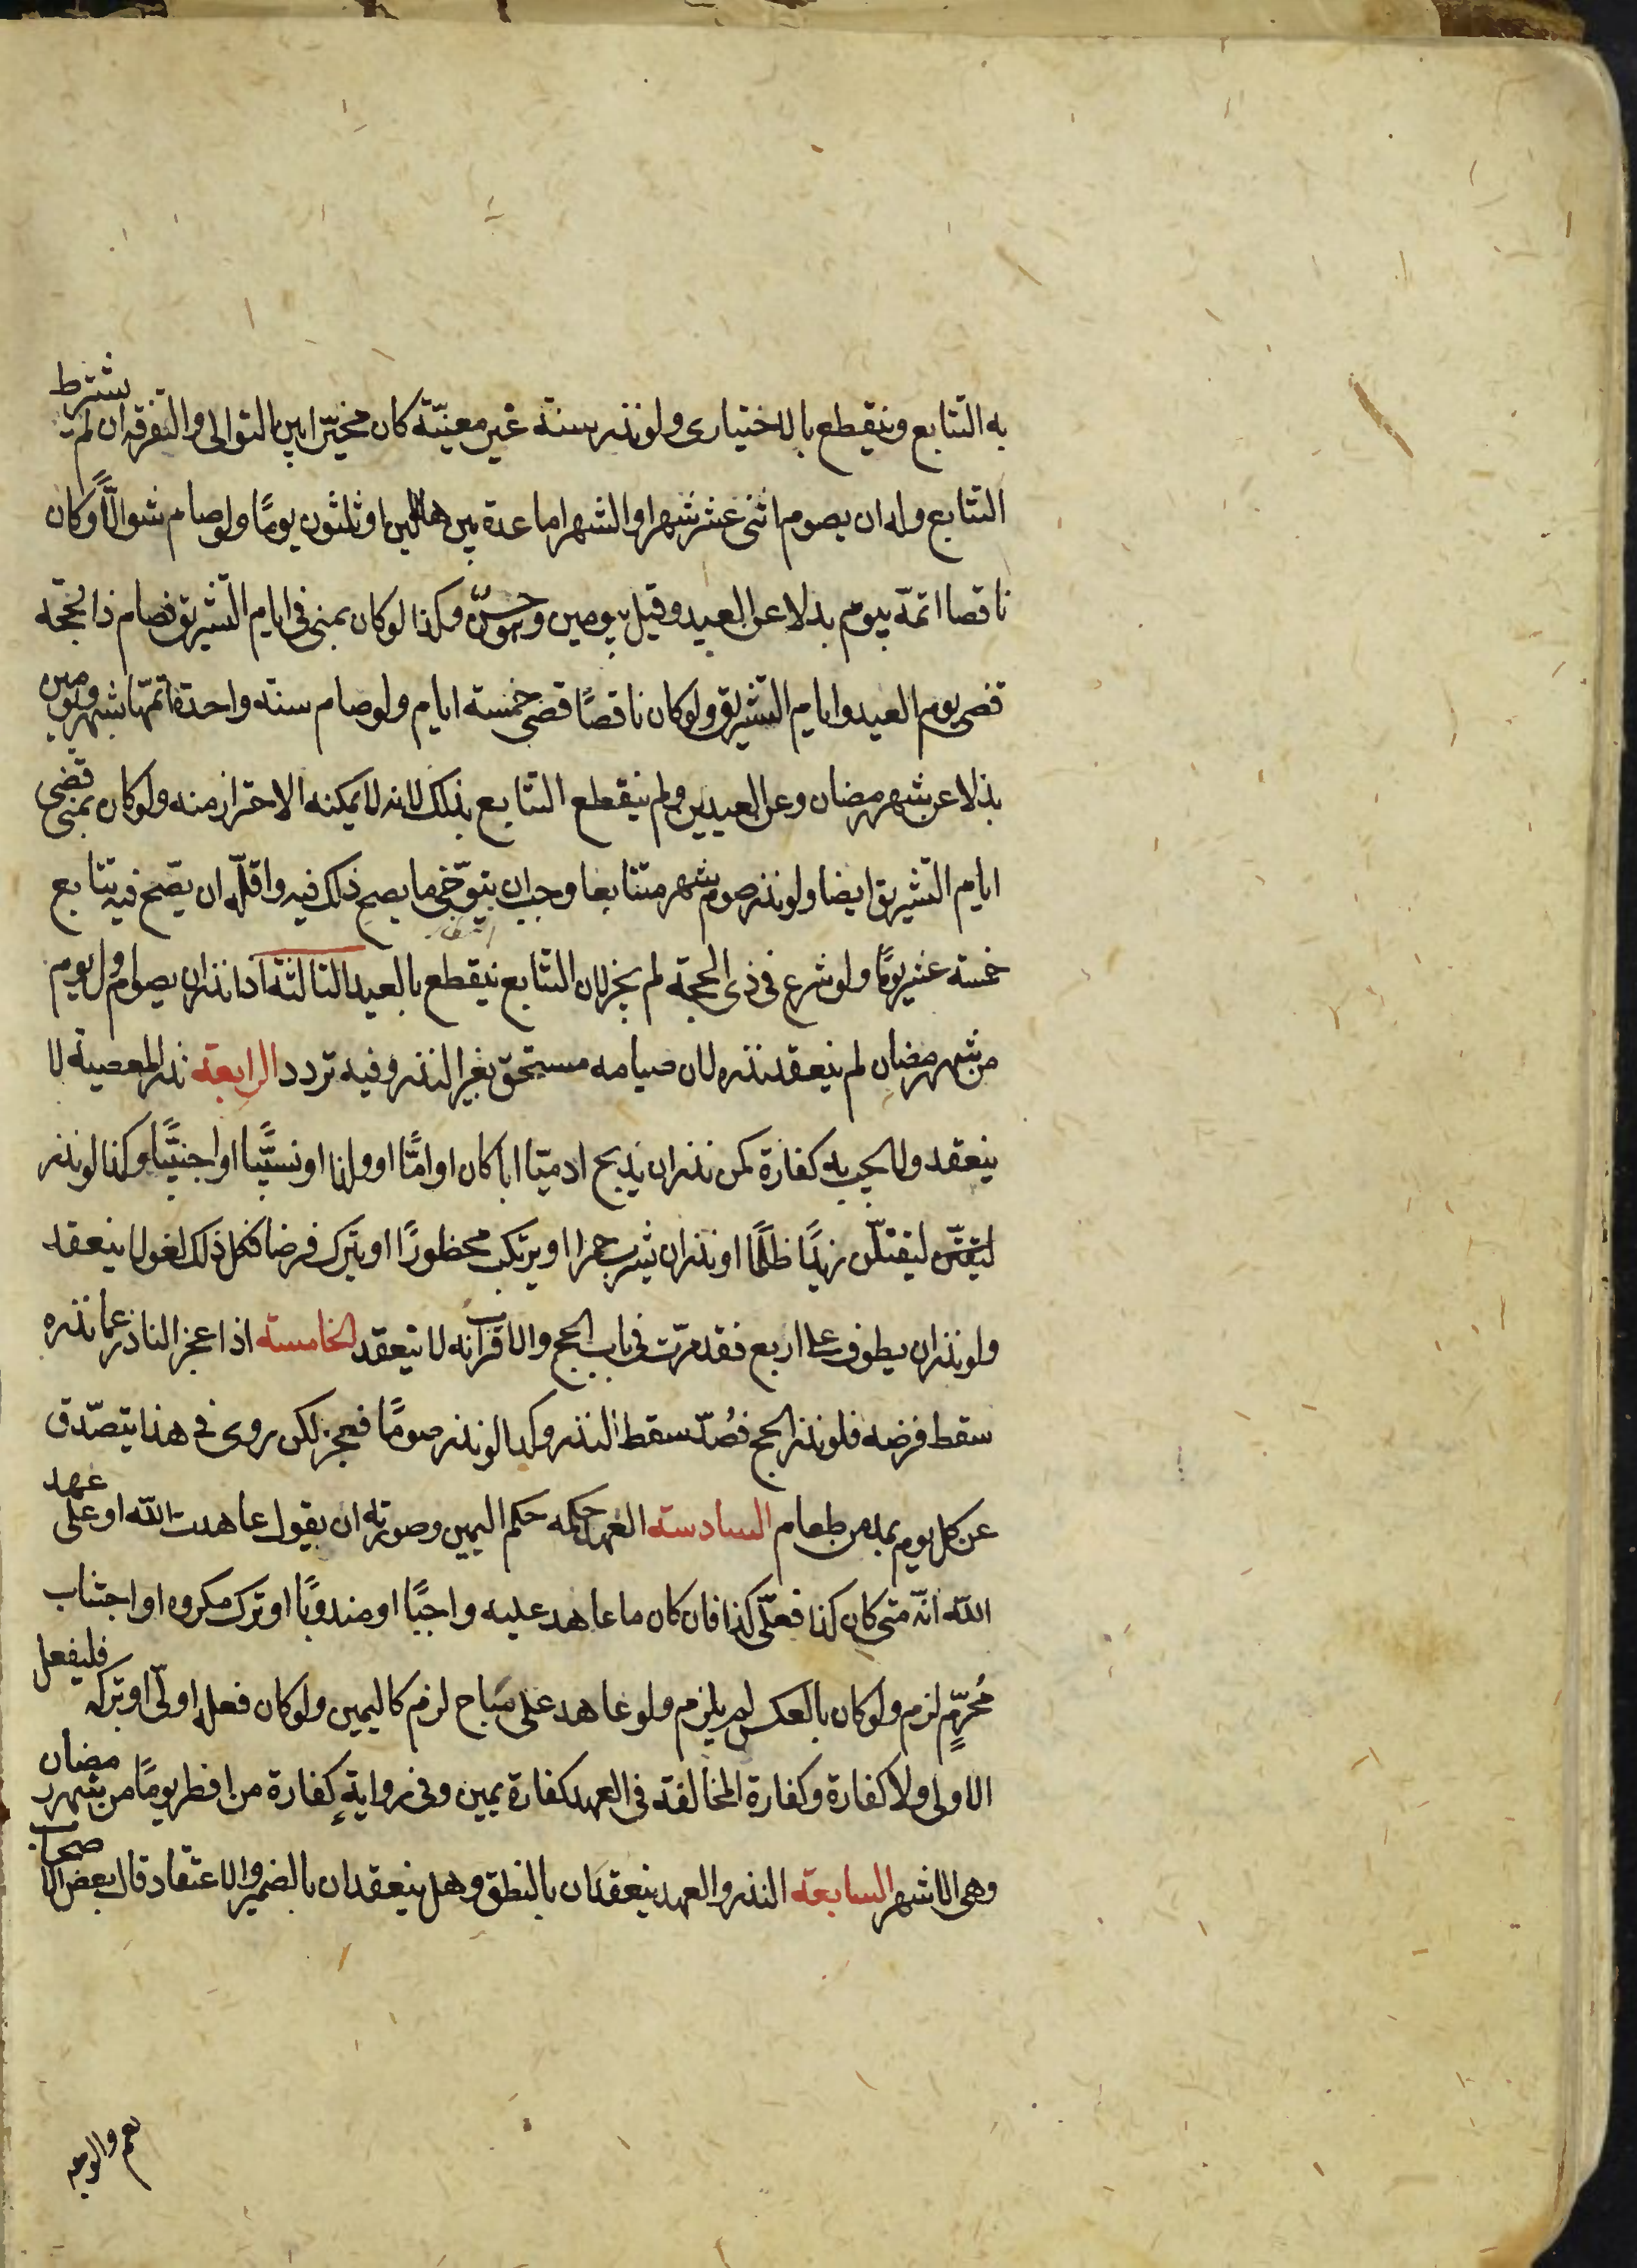 به التتابع وينقطع بالاختيارى ولو نذر سنة غير معينّة كان مخيّرا بين التوالى والتفرقه ان لم يشترط
التتابع وله ان يصوم اثنى عشر شهرا والشهر اما عدة بين هلالين او ثلثون يومًا ولو صام شوالًا وكان
ناقصا اتمّه بيوم بدلا عن العيد وقيل بيومين وهو حسنٌ وكذا لو كان بمنى فى ايام التشريق فصام ذا الحجّه
قضى يوم العيد وايام التشريق ولو كان ناقصًا قضى خمسة ايام ولو صام سنة واحدة اتمّها بشهر ويومين
بدلا عن شهر رمضان وعن العيدين ولم ينقطع التتابع بذلك لانه لا يمكنه الاحتراز منه ولو كان بمنى قضى
ايام التشريق ايضا ولو نذر صوم شهر متتابعا وجب ان يتوخّى ما يصح ذلك فيه واقلّه ان يصّح فيه تتابع
خمسة عشر يومًا ولو شرع فى ذى الحجة لم يجز لان التتابع ينقطع بالعيد الثالثة اذا نذر ان يصوم اول يوم
من شهر رمضان لم ينعقد نذره لان صيامه مستحق بغير النذر وفيه تردد الرابعة نذر المعصية لا
ينعقد ولا يجب به كفارة كمن نذر ان يذبح ادميّا ابا كان او امًّا او ولدا او نسيًّبا او اجنبيًّا وكذا لو نذر
ليقتلّن زيدًا ظلمًا او نذر ان يشرب خمرا او يرتكب محظورًا او يترك فرضا فكل ذلك لغو لا ينعقد
ولو نذر ان يطوف على اربع فقد مرّت فى باب الحج والاقرب انه لا ينعقد الخامسة اذا عجز الناذر عما نذره
سقط فرضه فلو نذر الحج فصُدّ سقط النذر وكذا لو نذر صومًا فعجز لكن روى فى هذا يتصّدق
عن كل يوم بمد من طعام السادسة العهد حكمه حكم اليمين وصورته ان يقول عاهدت الله او على عهد
الله انّه متى كان كذا فعلّى كذا فان كان ما عاهد عليه واجبًا او مندوبًا او ترك مكروه او اجتناب
مُحرّمٍ لزم ولو كان بالعكس لم يلزم ولو عاهد على مباح لزم كاليمين ولو كان فعله اولى او تركه فليفعل
الاولى ولا كفارة وكفارة المخالفة فى العهد كفارة يمين وفى روايةٍ كفارة من افطر يومًا من شهر رمضان
وهى الاشهر السابعة النذر والعهد ينعقدان بالنطق وهل ينعقدان بالضمير والاعتقاد قال بعض الاصحاب
نعم والوجه